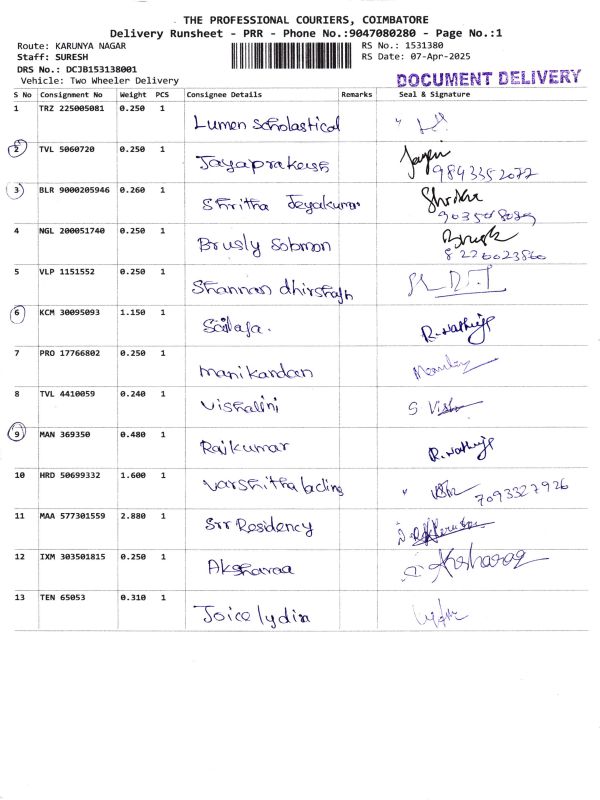 THE PROFESSIONAL COURIERS, COIMBATORE
Delivery Runsheet - PRR - Phone No.:9047080280 - Page No.:1
Route: KARUNYA NAGAR RS No.: 1531380
Staff: SURESH RS Date: 07-Apr-2025
DRS No.: DCJB153138001
Vehicle: Two Wheeler Delivery DOCUMENT DELIVERY
S No Consignment No Weight PCS Consignee Details Remarks Seal & Signature
1 TRZ 225005081 0.250 1 Lumen Scholastical
2 TVL 5060720 0.250 1 Jayaprakash
9843352077
3 BLR 9000205946 0.260 1 Shritha Jeyakumar
4 NGL 200051740 0.250 1 Brusly Solomon
8226023860
5 VLP 1151552 0.250 1 Shannan dhirshajh
6 KCM 30095093 1.150 1 Sailaja.
7 PRO 17766802 0.250 1 manikandan
8 TVL 4410059 0.240 1 Vishalini
9 MAN 369350 0.480 1 Rajkumar
10 HRD 50699332 1.600 1 Varshitha
7093327926
11 MAA 577301559 2.880 1 Srr Residency
12 IXM 303501815 0.250 1 Aksharaa
13 TEN 65053 0.310 1 Joice lydia